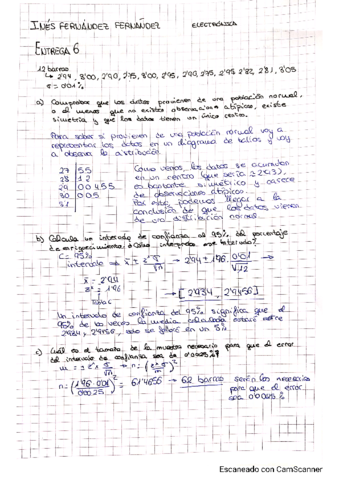 INÉS FERNÁNDEZ FERNÁNDEZ ELECTRÓNICA
ENTREGA 6
12 barras
↳ 2'94, 3'00, 2'90, 2'75, 3'00, 2'95, 2'90, 2'75, 2'95 2'82, 2'81, 3'05
σ = 0'01 %
a) Comprobar que los datos provienen de una población normal,
o al menos que no existen observaciones atípicas, existe
simetría y que los datos tienen un único centro.
Para saber si provienen de una población normal voy a
representar los datos en un diagrama de tallos y voy
a observar la distribución.
27 | 55
28 | 12
29 | 00455
30 | 005
31 |
Como vemos, los datos se acumulan
en un centro (que sería ), 
es bastante simétrico y carece
de observaciones atípicas.
Por esto, podemos llegar a la
conclusión de que los datos vienen
de una distribución normal.
b) Calcula un intervalo de confianza al 95% del porcentaje
de ¿Cómo interpretas ese intervalo?
C = 95%
intervalo → x̄ ± z* σ/√n → 2'94 ± 1'96 · 0'01/√12 →
x̄ = 2'94
z* = 1'96
→ [2'934, 2'9456]
Un intervalo de confianza del 95% significa que el
95% de las veces la media calculada estará entre
2'934, 2'9456, esto se en un 5%.
c) ¿Cuál es el tamaño de la muestra necesario para que el error
del intervalo de confianza sea de 0'0025%?
m = z* σ/√n → n = (z* σ/m)²
n = (1'96 · 0'01/0'0025)² = 61'4656 → 62 barras serán las necesarias
para que el error
sea 0'0025
Escaneado con CamScanner